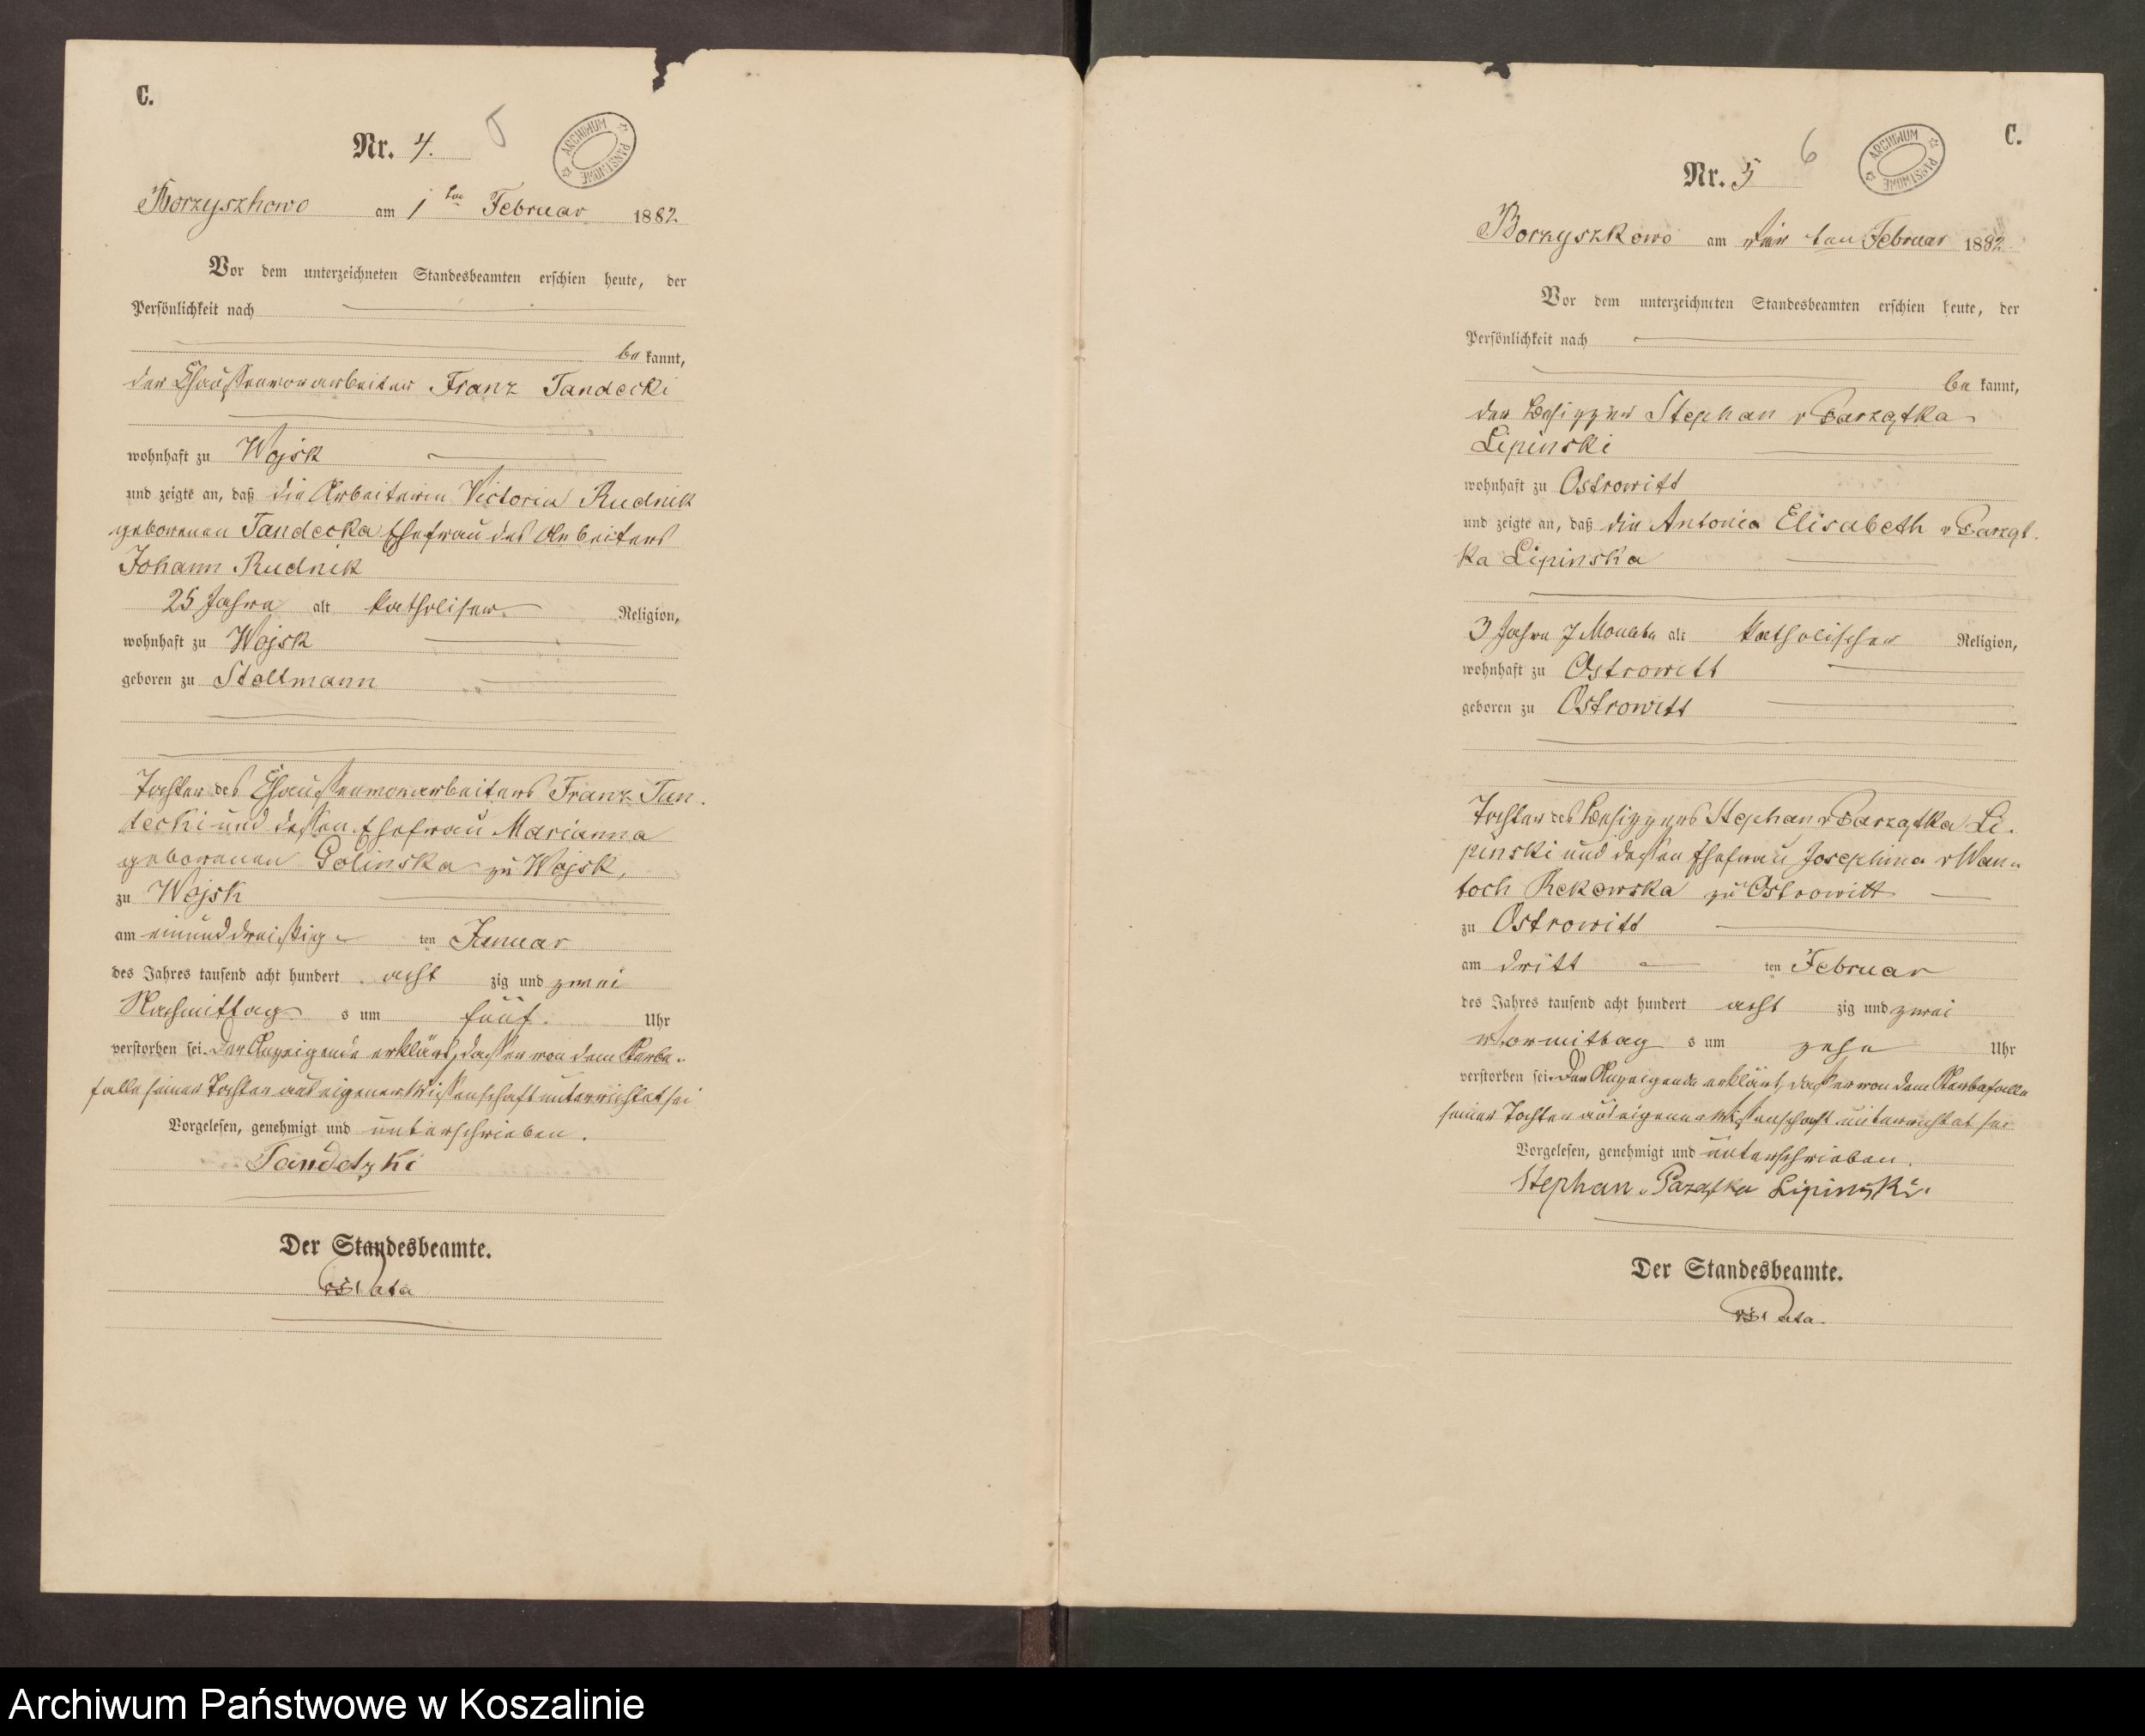 C.
Nr. 4. 5
ARCHIWUM PAŃSTWOWE
Borzyszkowo am 1 ten Februar 1882.
Vor dem unterzeichneten Standesbeamten erschien heute, der
Persönlichkeit nach
be kannt,
der Chausseevorarbeiter Franz Tandecki
wohnhaft zu Wojsk
und zeigte an, daß die Arbeiterin Victoria Rudnik
geborenen Tandecka Ehefrau des Arbeiters
Johann Rudnik
25 Jahre alt katholischer Religion,
wohnhaft zu Wojsk
geboren zu Steltmann
Tochter des Chausseevorarbeiters Franz Tan.
decki und dessen Ehefrau Marianna
geborenen Golinska zu Wojsk,
zu Wojsk
am einunddreißig ten Januar
des Jahres tausend acht hundert acht zig und zwei
Nachmittag s um fünf Uhr
verstorben sei. Der Anzeigende erklärt, dass er von dem Sterbe-
falle seiner Tochter aus eigener Wissenschaft unterrichtet sei
Vorgelesen, genehmigt und unterschrieben.
Tandetzki
Der Standesbeamte.
C.
Nr. 5 6
ARCHIWUM PAŃSTWOWE
Borzyszkowo am vier ten Februar 1882.
Vor dem unterzeichneten Standesbeamten erschien heute, der
Persönlichkeit nach
be kannt,
der Besitzer Stephan v Parzatka
Lipinski
wohnhaft zu Ostrowitt
und zeigte an, daß die Antonia Elisabeth v Parzat.
ka Lipinska
3 Jahre 7 Monate alt katholischer Religion,
wohnhaft zu Ostrowitt
geboren zu Ostrowitt
Tochter des Besitzers Stephan v Parzatka Li.
pinski und dessen Ehefrau Josephina v Wan-
toch Rekowska zu Ostrowitt
zu Ostrowitt
am dritt ten Februar
des Jahres tausend acht hundert acht zig und zwei
Vormittag s um zehn Uhr
verstorben sei. Der Anzeigende erklärt, dass er von dem Sterbefalle
seiner Tochter aus eigener Wissenschaft unterrichtet sei
Vorgelesen, genehmigt und unterschrieben.
Stephan v Pazatka Lipinski.
Der Standesbeamte.
Archiwum Państwowe w Koszalinie